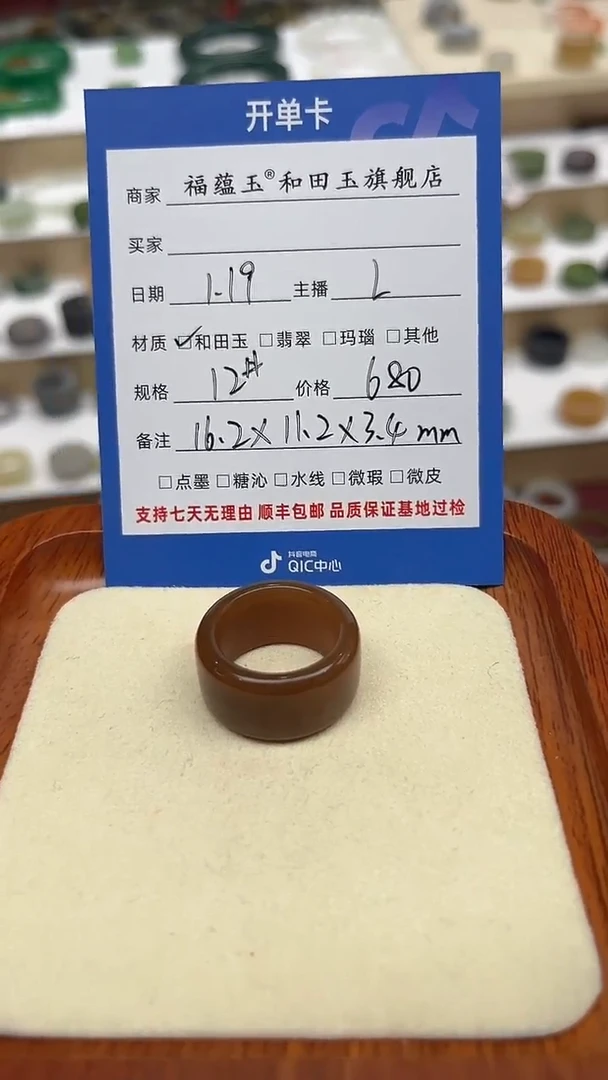 开单卡
商家 福蕴玉®和田玉旗舰店
买家
日期 1.19 主播 L
材质 ☑和田玉 □翡翠 □玛瑙 □其他
规格 12# 价格 680
备注 16.2×11.2×3.4mm
□点墨 □糖沁 □水线 □微瑕 □微皮
支持七天无理由 顺丰包邮 品质保证基地过检
抖音电商
QIC中心